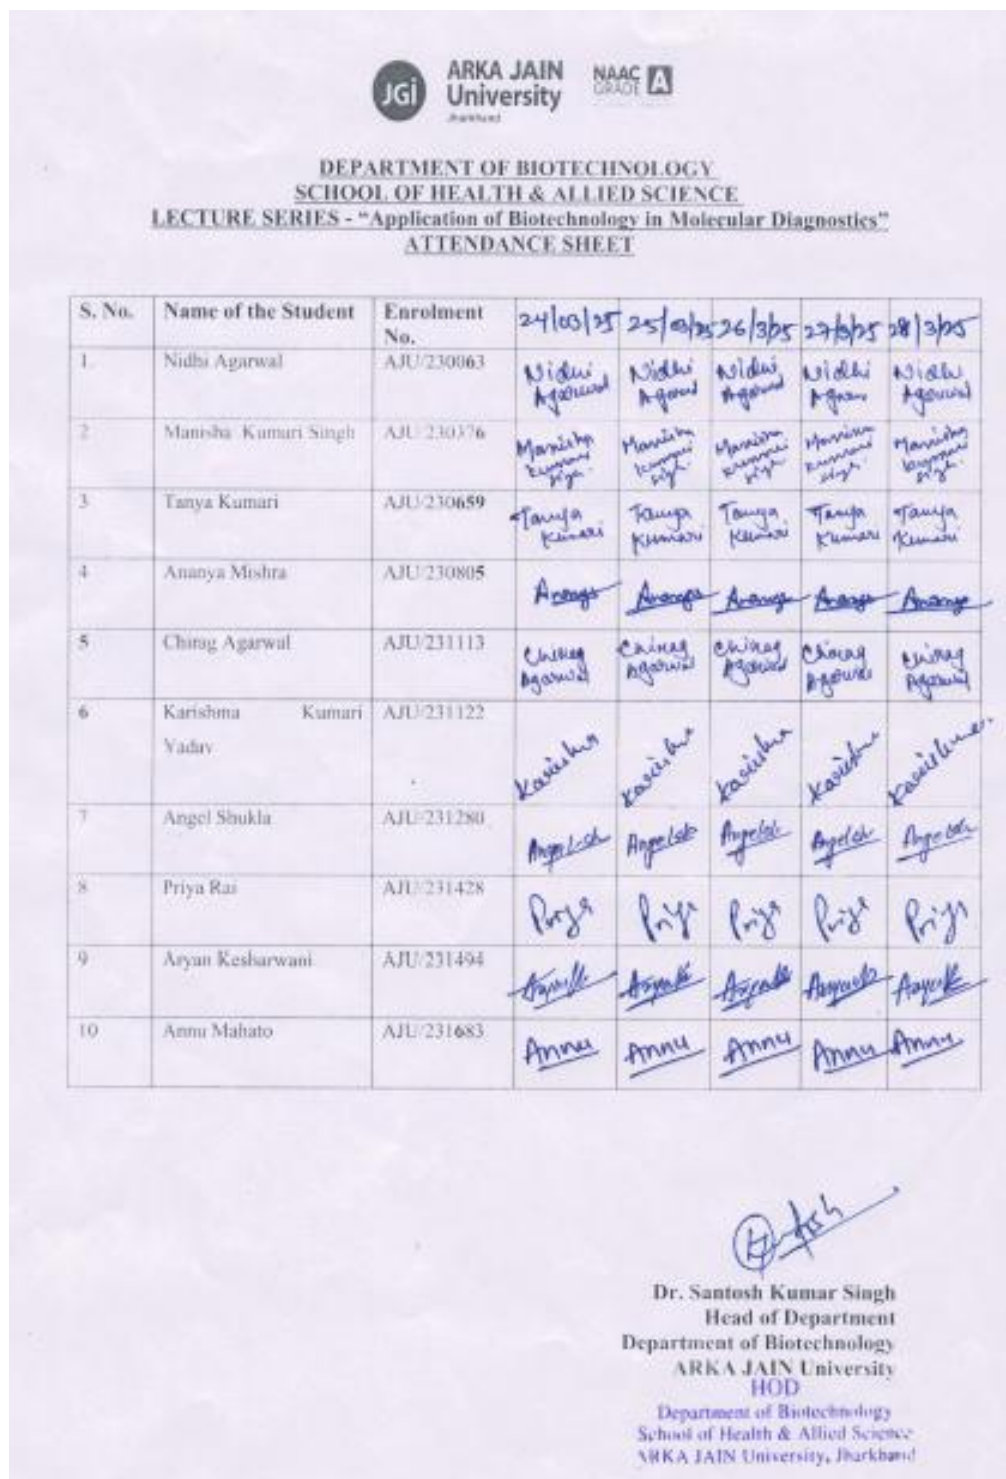 JGi
ARKA JAIN
University
Jharkhand
NAAC
GRADE A
DEPARTMENT OF BIOTECHNOLOGY
SCHOOL OF HEALTH & ALLIED SCIENCE
LECTURE SERIES - “Application of Biotechnology in Molecular Diagnostics”
ATTENDANCE SHEET
S. No. Name of the Student Enrolment No. 24/03/25 25/03/25 26/3/25 27/3/25 28/3/25
1. Nidhi Agarwal AJU/230063 Nidhi Agarwal Nidhi Agarwal Nidhi Agarwal Nidhi Agarwal Nidhi Agarwal
2 Manisha Kumari Singh AJU/230376 Manisha Kumari Singh Manisha Kumari Singh Manisha Kumari Singh Manisha Kumari Singh Manisha Kumari Singh
3 Tanya Kumari AJU/230659 Tanya Kumari Tanya Kumari Tanya Kumari Tanya Kumari Tanya Kumari
4 Ananya Mishra AJU/230805 Ananya Ananya Ananya Ananya Ananya
5 Chirag Agarwal AJU/231113 Chirag Agarwal Chirag Agarwal Chirag Agarwal Chirag Agarwal Chirag Agarwal
6 Karishma Kumari Yadav AJU/231122 Karishma Karishma Karishma Karishma Karishma
7 Angel Shukla AJU/231280 Angel Angel Angel Angel Angel
8 Priya Rai AJU/231428 Priya Priya Priya Priya Priya
9 Aryan Kesharwani AJU/231494
10 Annu Mahato AJU/231683 Annu Annu Annu Annu Annu
Dr. Santosh Kumar Singh
Head of Department
Department of Biotechnology
ARKA JAIN University
HOD
Department of Biotechnology
School of Health & Allied Science
ARKA JAIN University, Jharkhand